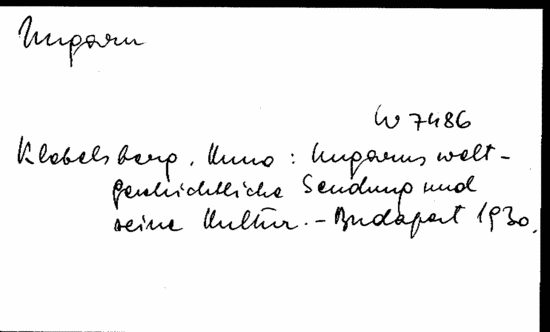 Ungarn
W 7486
Klebelsberg, Kuno: Ungarns welt-
geschichtliche Sendung und
seine Kultur. - Budapest 1930.